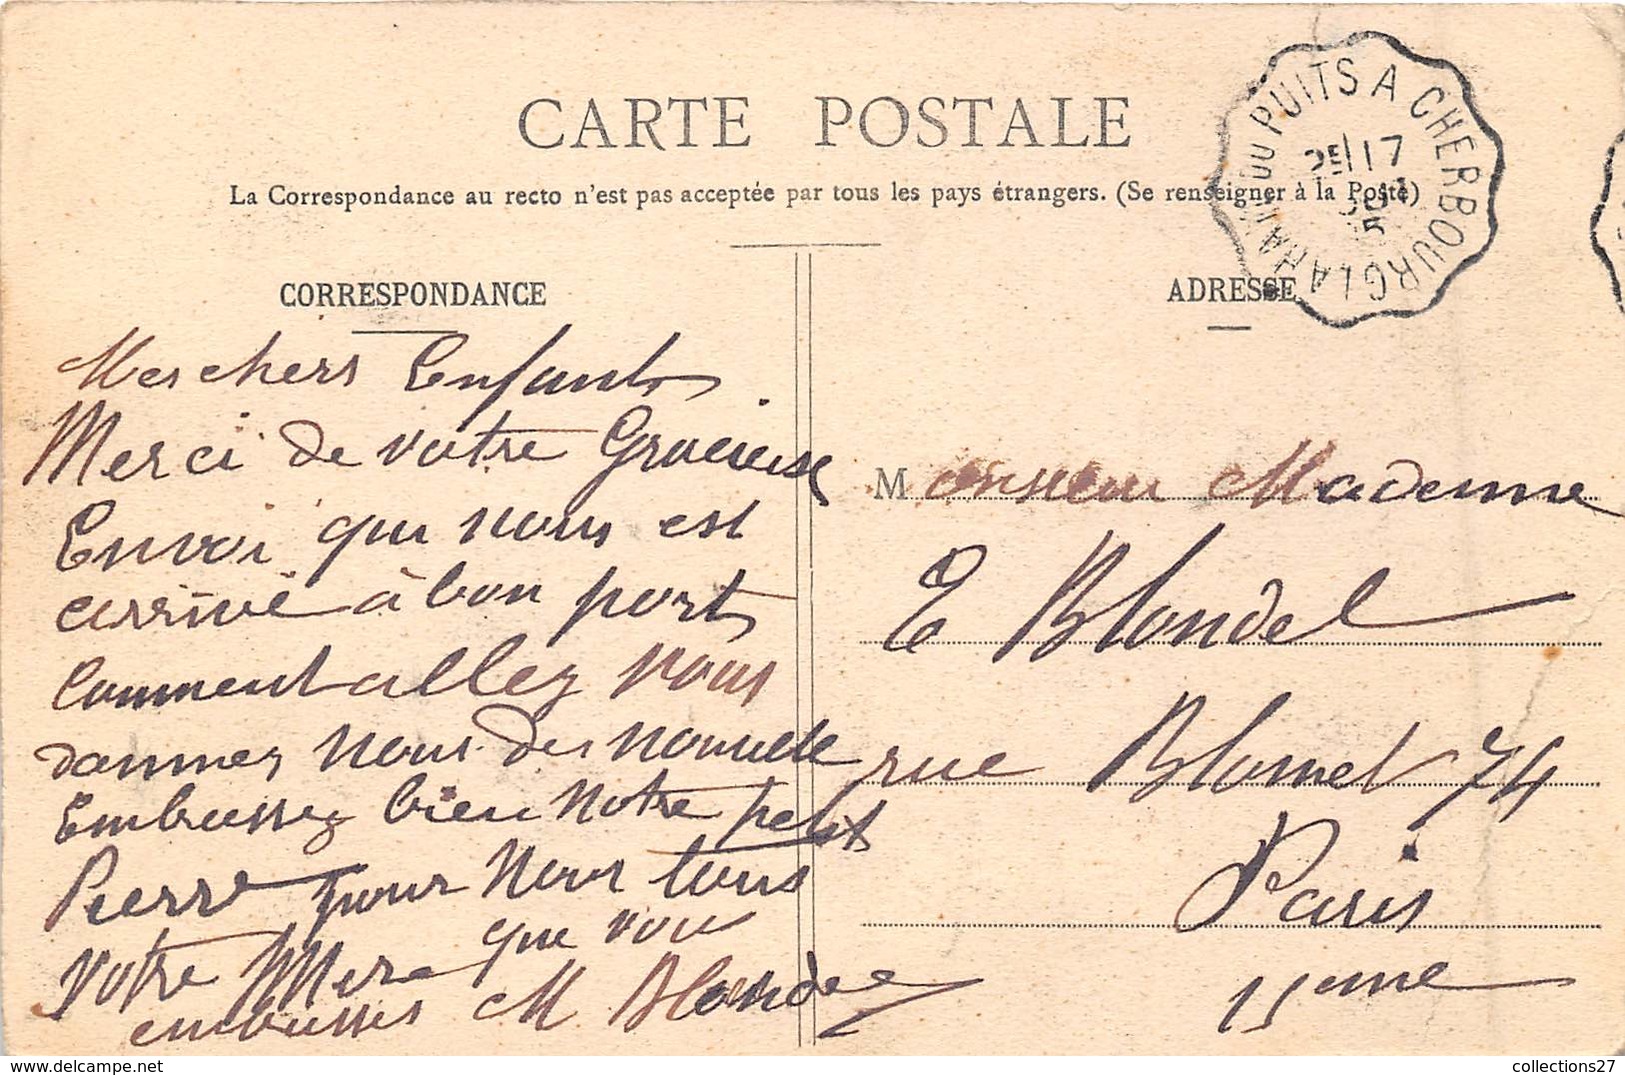 CARTE POSTALE
La Correspondance au recto n'est pas acceptée par tous les pays étrangers. (Se renseigner à la Poste)
CORRESPONDANCE
Mes chers Enfants
Merci de votre Gracieuse
Envoi qui nous est
arrivé à bon port
Comment allez vous
donnez nous des nouvelle
Embrassez bien notre petit
Pierre pour nous tous
Votre Mere que vou
embrasses M Blondel
ADRESSE
Monsieur Madame
E Blondel
rue Blomet 74
Paris
15eme
LA HAYE DU PUITS A CHERBOURG
17
collections27